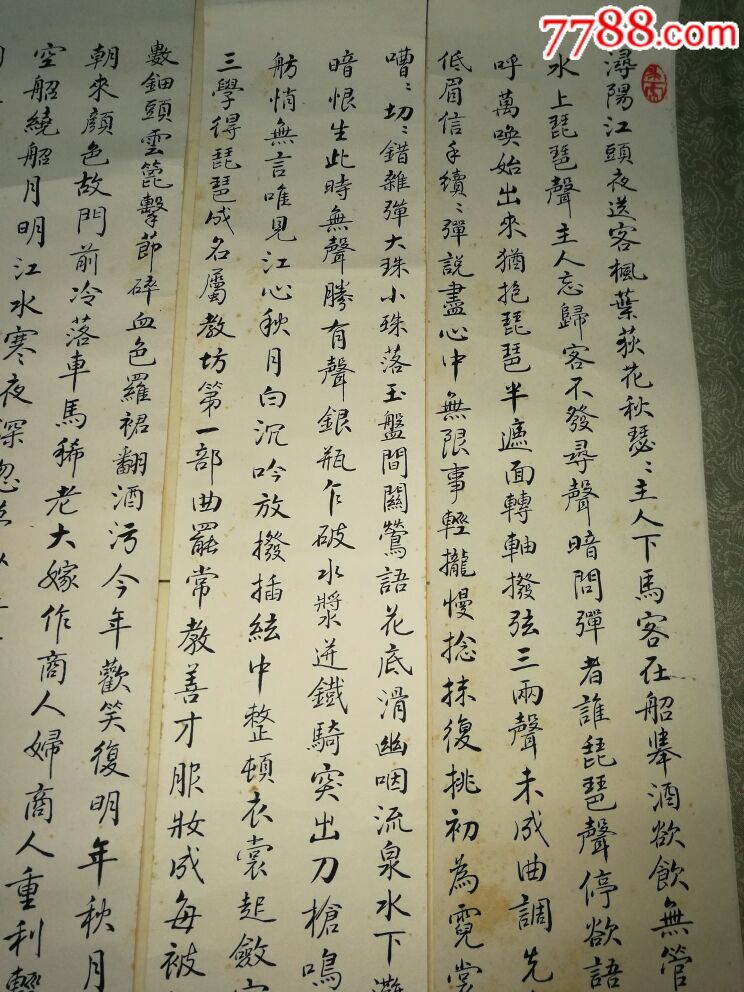 7788.com
潯陽江頭夜送客楓葉荻花秋瑟〻主人下馬客在船舉酒欲飲無管
水上琵琶聲主人忘歸客不發尋聲暗問彈者誰琵琶聲停欲語
呼萬喚始出來猶抱琵琶半遮面轉軸撥弦三兩聲未成曲調先
低眉信手續〻彈說盡心中無限事輕攏慢捻抹復挑初為霓裳
嘈〻切〻錯雜彈大珠小珠落玉盤間關鶯語花底滑幽咽流泉水下灘
暗恨生此時無聲勝有聲銀瓶乍破水漿迸鐵騎突出刀槍鳴
舫悄無言唯見江心秋月白沉吟放撥插絃中整頓衣裳起斂
三學得琵琶成名屬教坊第一部曲罷常教善才服妝成每被
數鈿頭雲篦擊節碎血色羅裙翻酒污今年歡笑復明年秋月
朝來顏色故門前冷落車馬稀老大嫁作商人婦商人重利輕
空船繞船月明江水寒夜深忽